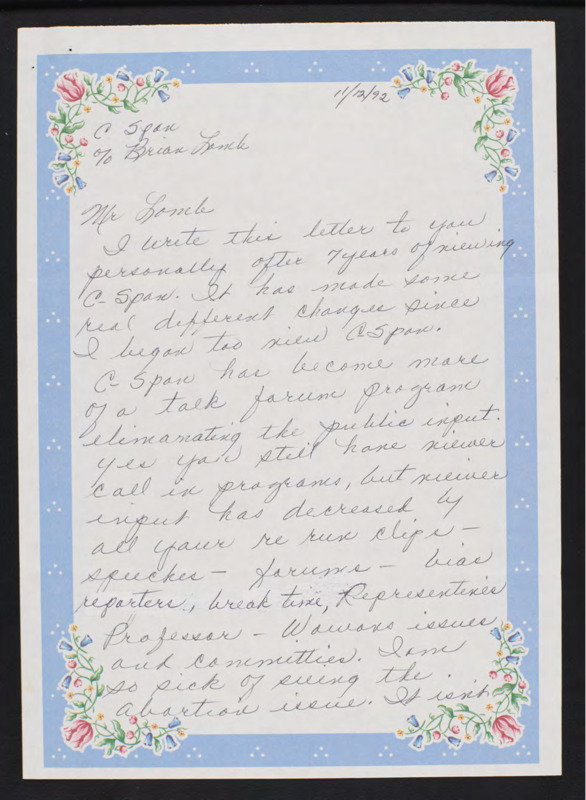 11/12/92
C Span
c/o Brian Lamb
Mr Lamb
I write this letter to you
personally after 7 years of viewing
C-Span. It has made some
real different changes since
I began too view C Span.
C-Span has become more
of a talk forum program
elimanating the public input.
Yes you still have viewer
call in programs, but viewer
input has decreased by
all your re run clips -
speeches - forums - bias
reporters, break time, Representives
Professor - Womans issues
and committies. I am
so sick of seeing the
abortion issue. It isn't